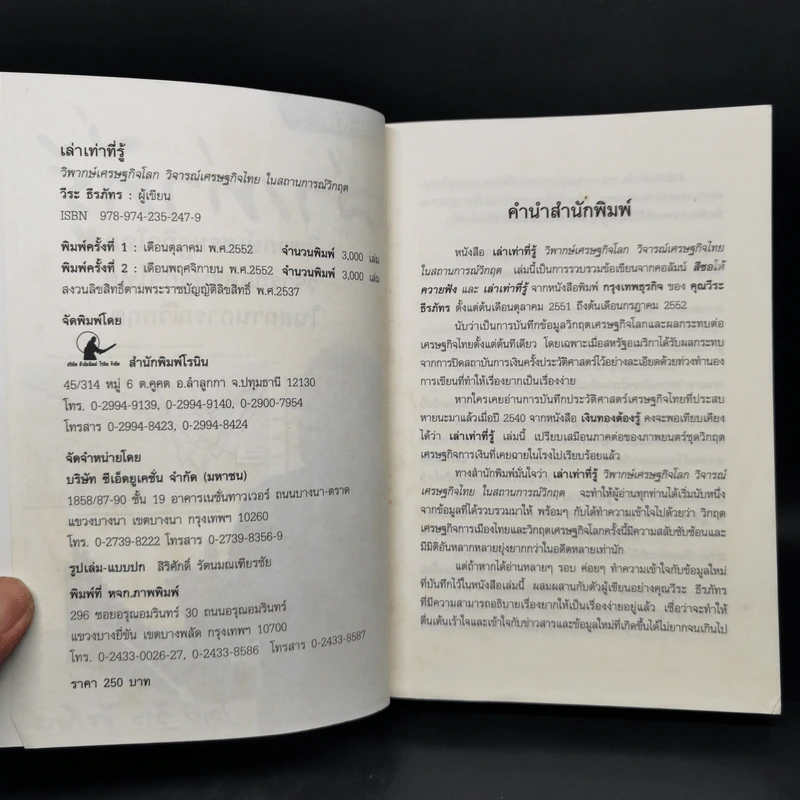 เล่าเท่าที่รู้
วิพากษ์เศรษฐกิจโลก วิจารณ์เศรษฐกิจไทย ในสถานการณ์วิกฤต
วีระ ธีรภัทร : ผู้เขียน
ISBN 978-974-235-247-9
พิมพ์ครั้งที่ 1 : เดือนตุลาคม พ.ศ.2552 จำนวนพิมพ์ 3,000 เล่ม
พิมพ์ครั้งที่ 2 : เดือนพฤศจิกายน พ.ศ.2552 จำนวนพิมพ์ 3,000 เล่ม
สงวนลิขสิทธิ์ตามพระราชบัญญัติลิขสิทธิ์ พ.ศ.2537
จัดพิมพ์โดย
สำนักพิมพ์โรนิน
45/314 หมู่ 6 ต.คูคต อ.ลำลูกกา จ.ปทุมธานี 12130
โทร. 0-2994-9139, 0-2994-9140, 0-2900-7954
โทรสาร 0-2994-8423, 0-2994-8424
จัดจำหน่ายโดย
บริษัท ซีเอ็ดยูเคชั่น จำกัด (มหาชน)
1858/87-90 ชั้น 19 อาคารเนชั่นทาวเวอร์ ถนนบางนา-ตราด
แขวงบางนา เขตบางนา กรุงเทพฯ 10260
โทร. 0-2739-8222 โทรสาร 0-2739-8356-9
รูปเล่ม-แบบปก สิริศักดิ์ รัตนมณเฑียรชัย
พิมพ์ที่ หจก.ภาพพิมพ์
296 ซอยอรุณอมรินทร์ 30 ถนนอรุณอมรินทร์
แขวงบางยี่ขัน เขตบางพลัด กรุงเทพฯ 10700
โทร. 0-2433-0026-27, 0-2433-8586 โทรสาร 0-2433-8587
ราคา 250 บาท
คำนำสำนักพิมพ์
หนังสือ เล่าเท่าที่รู้ วิพากษ์เศรษฐกิจโลก วิจารณ์เศรษฐกิจไทย
ในสถานการณ์วิกฤต เล่มนี้เป็นการรวบรวมข้อเขียนจากคอลัมน์ สีซอให้
ควายฟัง และ เล่าเท่าที่รู้ จากหนังสือพิมพ์ กรุงเทพธุรกิจ ของ คุณวีระ
ธีรภัทร ตั้งแต่ต้นเดือนตุลาคม 2551 ถึงต้นเดือนกรกฎาคม 2552
นับว่าเป็นการบันทึกข้อมูลวิกฤตเศรษฐกิจโลกและผลกระทบต่อ
เศรษฐกิจไทยตั้งแต่ต้นทีเดียว โดยเฉพาะเมื่อสหรัฐอเมริกาได้รับผลกระทบ
จากการปิดสถาบันการเงินครั้งประวัติศาสตร์ไว้อย่างละเอียดด้วยท่วงทำนอง
การเขียนที่ทำให้เรื่องยากเป็นเรื่องง่าย
หากใครเคยอ่านการบันทึกประวัติศาสตร์เศรษฐกิจไทยที่ประสบ
หายนะมาแล้วเมื่อปี 2540 จากหนังสือ เงินทองต้องรู้ คงจะพอเทียบเคียง
ได้ว่า เล่าเท่าที่รู้ เล่มนี้ เปรียบเสมือนภาคต่อของภาพยนตร์ชุดวิกฤต
เศรษฐกิจการเงินที่เคยฉายในโรงไปเรียบร้อยแล้ว
ทางสำนักพิมพ์มั่นใจว่า เล่าเท่าที่รู้ วิพากษ์เศรษฐกิจโลก วิจารณ์
เศรษฐกิจไทย ในสถานการณ์วิกฤต จะทำให้ผู้อ่านทุกท่านได้เริ่มนับหนึ่ง
จากข้อมูลที่ได้รวบรวมมาให้ พร้อมๆ กับได้ทำความเข้าใจไปด้วยว่า วิกฤต
เศรษฐกิจการเมืองไทยและวิกฤตเศรษฐกิจโลกครั้งนี้มีความสลับซับซ้อนและ
มีมิติอันหลากหลายยุ่งยากกว่าในอดีตหลายเท่านัก
แต่ถ้าหากได้อ่านหลายๆ รอบ ค่อยๆ ทำความเข้าใจกับข้อมูลใหม่
ที่บันทึกไว้ในหนังสือเล่มนี้ ผสมผสานกับตัวผู้เขียนอย่างคุณวีระ ธีรภัทร
ที่มีความสามารถอธิบายเรื่องยากให้เป็นเรื่องง่ายอยู่แล้ว เชื่อว่าจะทำให้
ตื่นเต้นเร้าใจและเข้าใจกับข่าวสารและข้อมูลใหม่ที่เกิดขึ้นได้ไม่ยากจนเกินไป